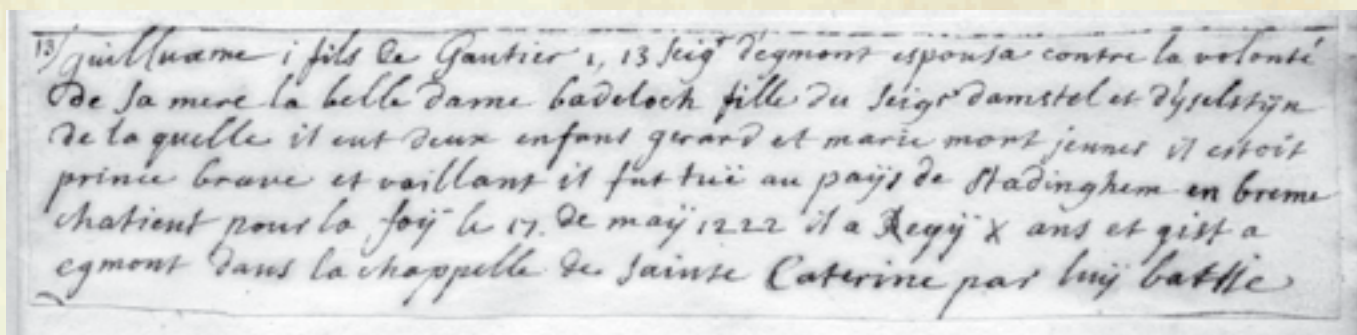 13/ guilluame i fils de Gautier 1, 13 seigr d'egmont espousa contre la volonté
de sa mere la belle dame badeloch fille du seigr damstel et dÿselstÿn
de la quelle il eut deux enfans gerard et marie mort jeunes il estoit
prince brave et vaillant il fut tuë au paÿs de Stadinghem en breme
chatient pour la foÿ le 17. de maÿ 1222 il a Regÿ X ans et gist a
egmont dans la chappelle de sainte Caterine par luÿ battie